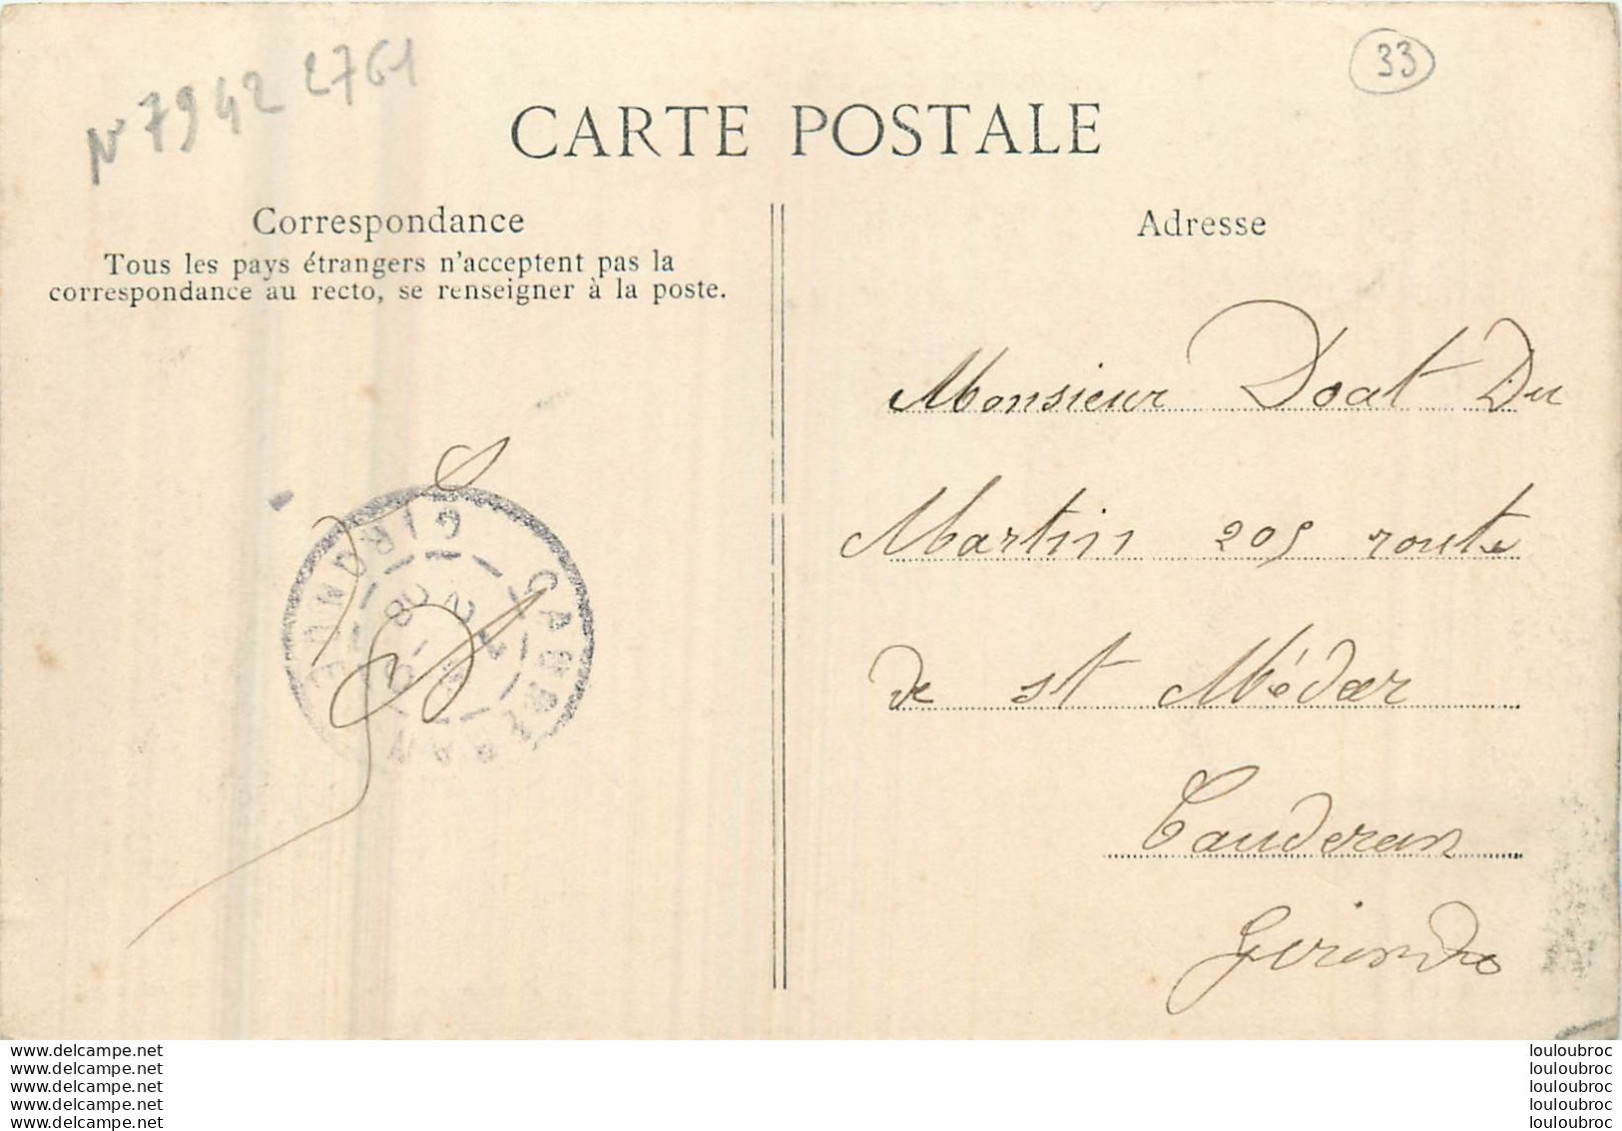 N° 7942 2761
33
CARTE POSTALE
Correspondance
Tous les pays étrangers n'acceptent pas la
correspondance au recto, se renseigner à la poste.
Adresse
Monsieur Doat Du
Martin 205 route
de st Médar
Cauderan
Gironde
CAUDERAN
GIRONDE
08
www.delcampe.net
www.delcampe.net
www.delcampe.net
www.delcampe.net
www.delcampe.net
louloubroc
louloubroc
louloubroc
louloubroc
louloubroc